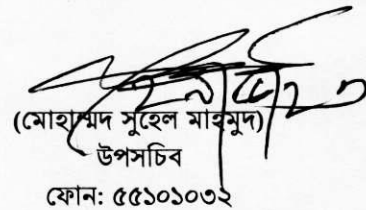 (মোহাম্মদ সুহেল মাহমুদ)
উপসচিব
ফোন: ৫৫১০১০৩২